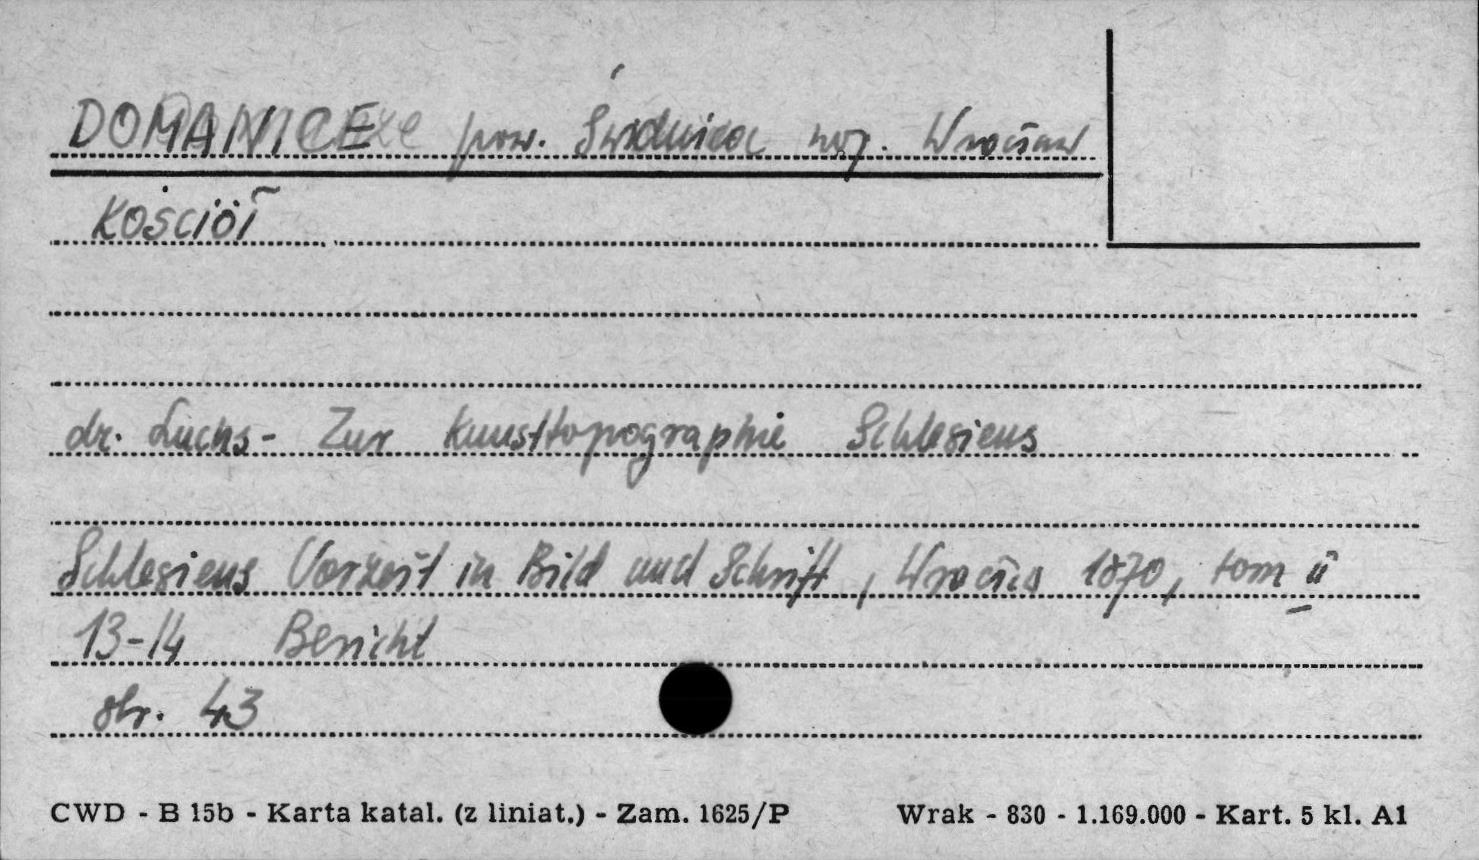 DOMANICE pow. Świdnica woj. Wrocław
KOŚCIÓŁ
dr. Luchs - Zur Kunsttopographie Schlesiens
Schlesiens Vorzeit in Bild und Schrift, Wrocła 1870, tom II
13-14 Bericht
str. 43
CWD - B 15b - Karta katal. (z liniat.) - Zam. 1625/P Wrak - 830 - 1.169.000 - Kart. 5 kl. A1